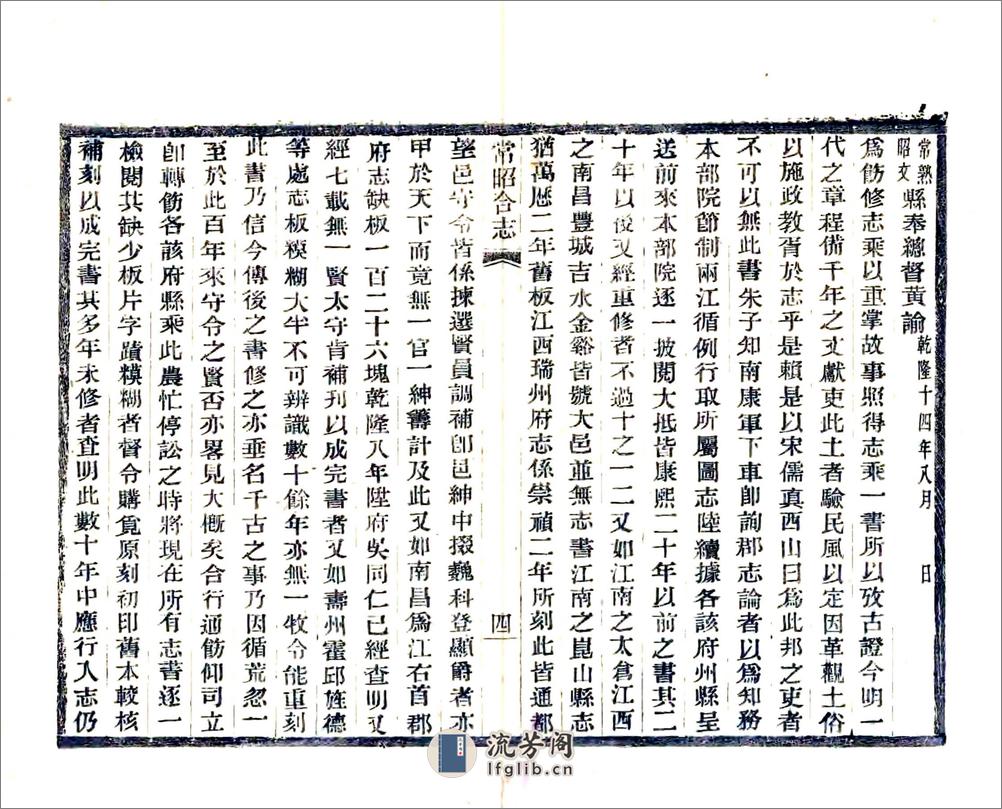 常熟昭文縣奉總督黃諭乾隆十四年八月　日
爲飭修志乘以重掌故事照得志乘一書所以攷古證今明一
代之章程備千年之文獻吏此土者驗民風以定因革觀土俗
以施政教胥於志乎是賴是以宋儒真西山曰爲此邦之吏者
不可以無此書朱子知南康軍下車卽詢郡志論者以爲知務
本部院節制兩江循例行取所屬圖志陸續據各該府州縣呈
送前來本部院逐一披閱大抵皆康熙二十年以前之書其二
十年以後又經重修者不過十之一二又如江南之太倉江西
之南昌豐城吉水金谿皆號大邑並無志書江南之崑山縣志
猶萬歷二年舊板江西瑞州府志係崇禎二年所刻此皆通都
常昭合志
四
望邑守令皆係揀選賢員調補卽邑紳中掇巍科登顯爵者亦
甲於天下而竟無一官一紳籌計及此又如南昌爲江右首郡
府志缺板一百二十六塊乾隆八年陞府吳同仁已經查明又
經七載無一賢太守肯補刊以成完書者又如壽州霍邱旌德
等處志板糢糊大半不可辨識數十餘年亦無一牧令能重刻
此書乃信今傳後之書修之亦垂名千古之事乃因循荒忽一
至於此百年來守令之賢否亦畧見大槪矣合行通飭仰司立
卽轉飭各該府縣乘此農忙停訟之時將現在所有志書逐一
檢閱其缺少板片字蹟糢糊者督令購覓原刻初印舊本較核
補刻以成完書其多年未修者查明此數十年中應行入志仍
流芳阁
lfglib.cn